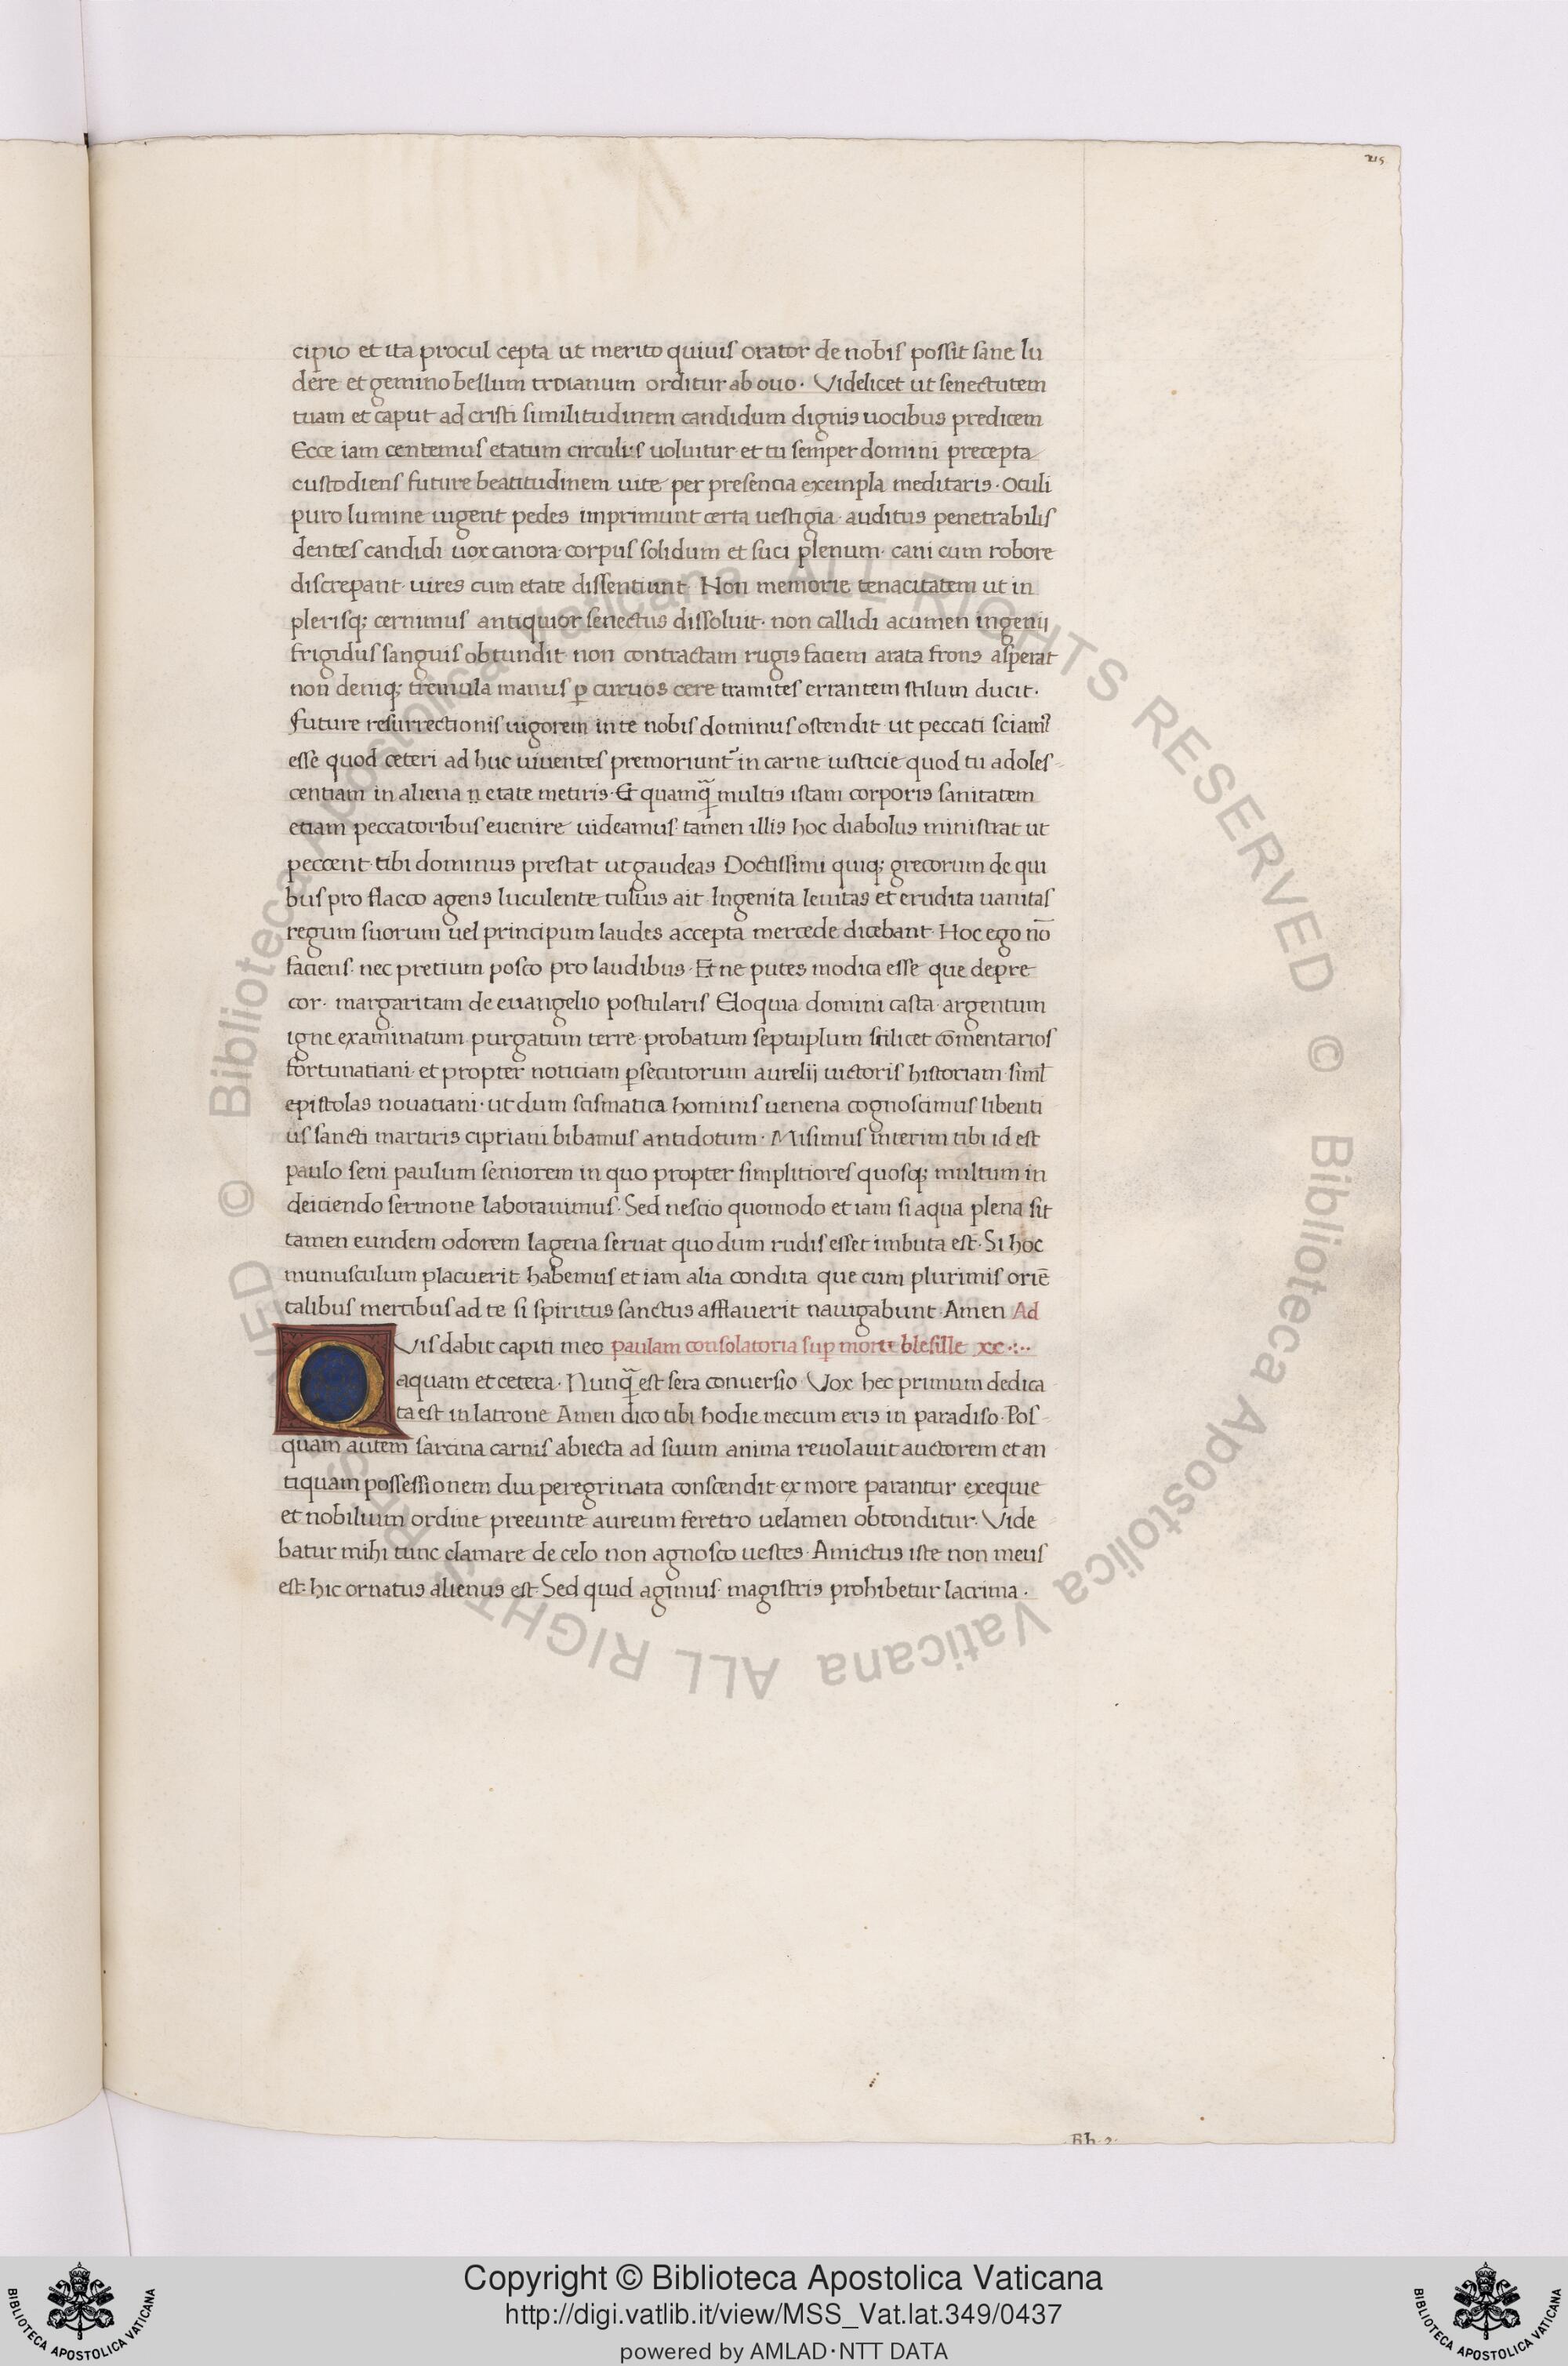 215
cipio et ita procul cepta ut merito quiuis orator de nobis possit sane lu
dere et gemino bellum troianum orditur ab ouo · Videlicet ut senectutem
tuam et caput ad cristi similitudinem candidum dignis uocibus predicem
Ecce iam centemus etatum circulus uoluitur · et tu semper domini precepta
custodiens future beatitudinem uite per presencia exempla meditaris · Oculi
puro lumine uigent pedes imprimunt certa uestigia · auditus penetrabilis
dentes candidi uox canora · corpus solidum et suci plenum · cani cum robore
discrepant · uires cum etate dissentiunt · Non memorie tenacitatem ut in
plerisq; cernimus antiquior senectus dissoluit · non callidi acumen ingenij
frigidus sanguis obtundit · non contractam rugis faciem arata frons asperat
non deniq; tremula manus ꝑ curuos cere tramites errantem stilum ducit ·
Future resurrectionis uigorem in te nobis dominus ostendit · ut peccati sciamꝰ
esse quod ceteri ad huc uiuentes premoriunt᷑ in carne iusticie quod tu adoles
centiam in aliena n etate metiris · Et quamq̃ multis istam corporis sanitatem
etiam peccatoribus euenire uideamus · tamen illis hoc diabolus ministrat ut
peccent · tibi dominus prestat ut gaudeas Doctissimi quiq; grecorum de qui
bus pro flacco agens luculente tulius ait · Ingenita leuitas et erudita uanitas
regum suorum uel principum laudes accepta mercede dicebant · Hoc ego nō
faciens · nec pretium posco pro laudibus · Et ne putes modica esse que depre
cor · margaritam de euangelio postularis Eloquia domini casta · argentum
igne examinatum · purgatum terre · probatum septuplum scilicet cōmentarios
fortunatiani · et propter noticiam ꝑsecutorum aurelij uictoris historiam · siml̄
epistolas nouatiani · ut dum scismatica hominis uenena cognoscimus libenti
us sancti martiris cipriani bibamus antidotum · Misimus interim tibi id est
paulo seni paulum seniorem in quo propter simplitiores quosq; multum in
deiciendo sermone laborauimus · Sed nescio quomodo et iam si aqua plena sit
tamen eundem odorem lagena seruat quo dum rudis esset imbuta est · Si hoc
munusculum placuerit habemus et iam alia condita que cum plurimis oriē
talibus mercibus ad te si spiritus sanctus afflauerit nauigabunt · Amen Ad
QVis dabit capiti meo paulam consolatoria suꝑ morte blesille xc ·:··
aquam et cetera · Nunq̃ est sera conuersio · Vox hec primum dedica
ta est in latrone Amen dico tibi hodie mecum eris in paradiso · Pos
quam autem sarcina carnis abiecta ad suum anima reuolauit auctorem et an
tiquam possessionem diu peregrinata conscendit · ex more parantur exequie
et nobilium ordine preeunte aureum feretro uelamen obtonditur · Vide
batur mihi tunc clamare de celo non agnosco uestes · Amictus iste non meus
est · hic ornatus alienus est · Sed quid agimus · magistris prohibetur lacrima ·
Bh 2
© Biblioteca Apostolica Vaticana ALL RIGHTS RESERVED © Biblioteca Apostolica Vaticana ALL RIGHTS RESERVED
Copyright © Biblioteca Apostolica Vaticana
http://digi.vatlib.it/view/MSS_Vat.lat.349/0437
powered by AMLAD·NTT DATA
BIBLIOTECA APOSTOLICA VATICANA
BIBLIOTECA APOSTOLICA VATICANA